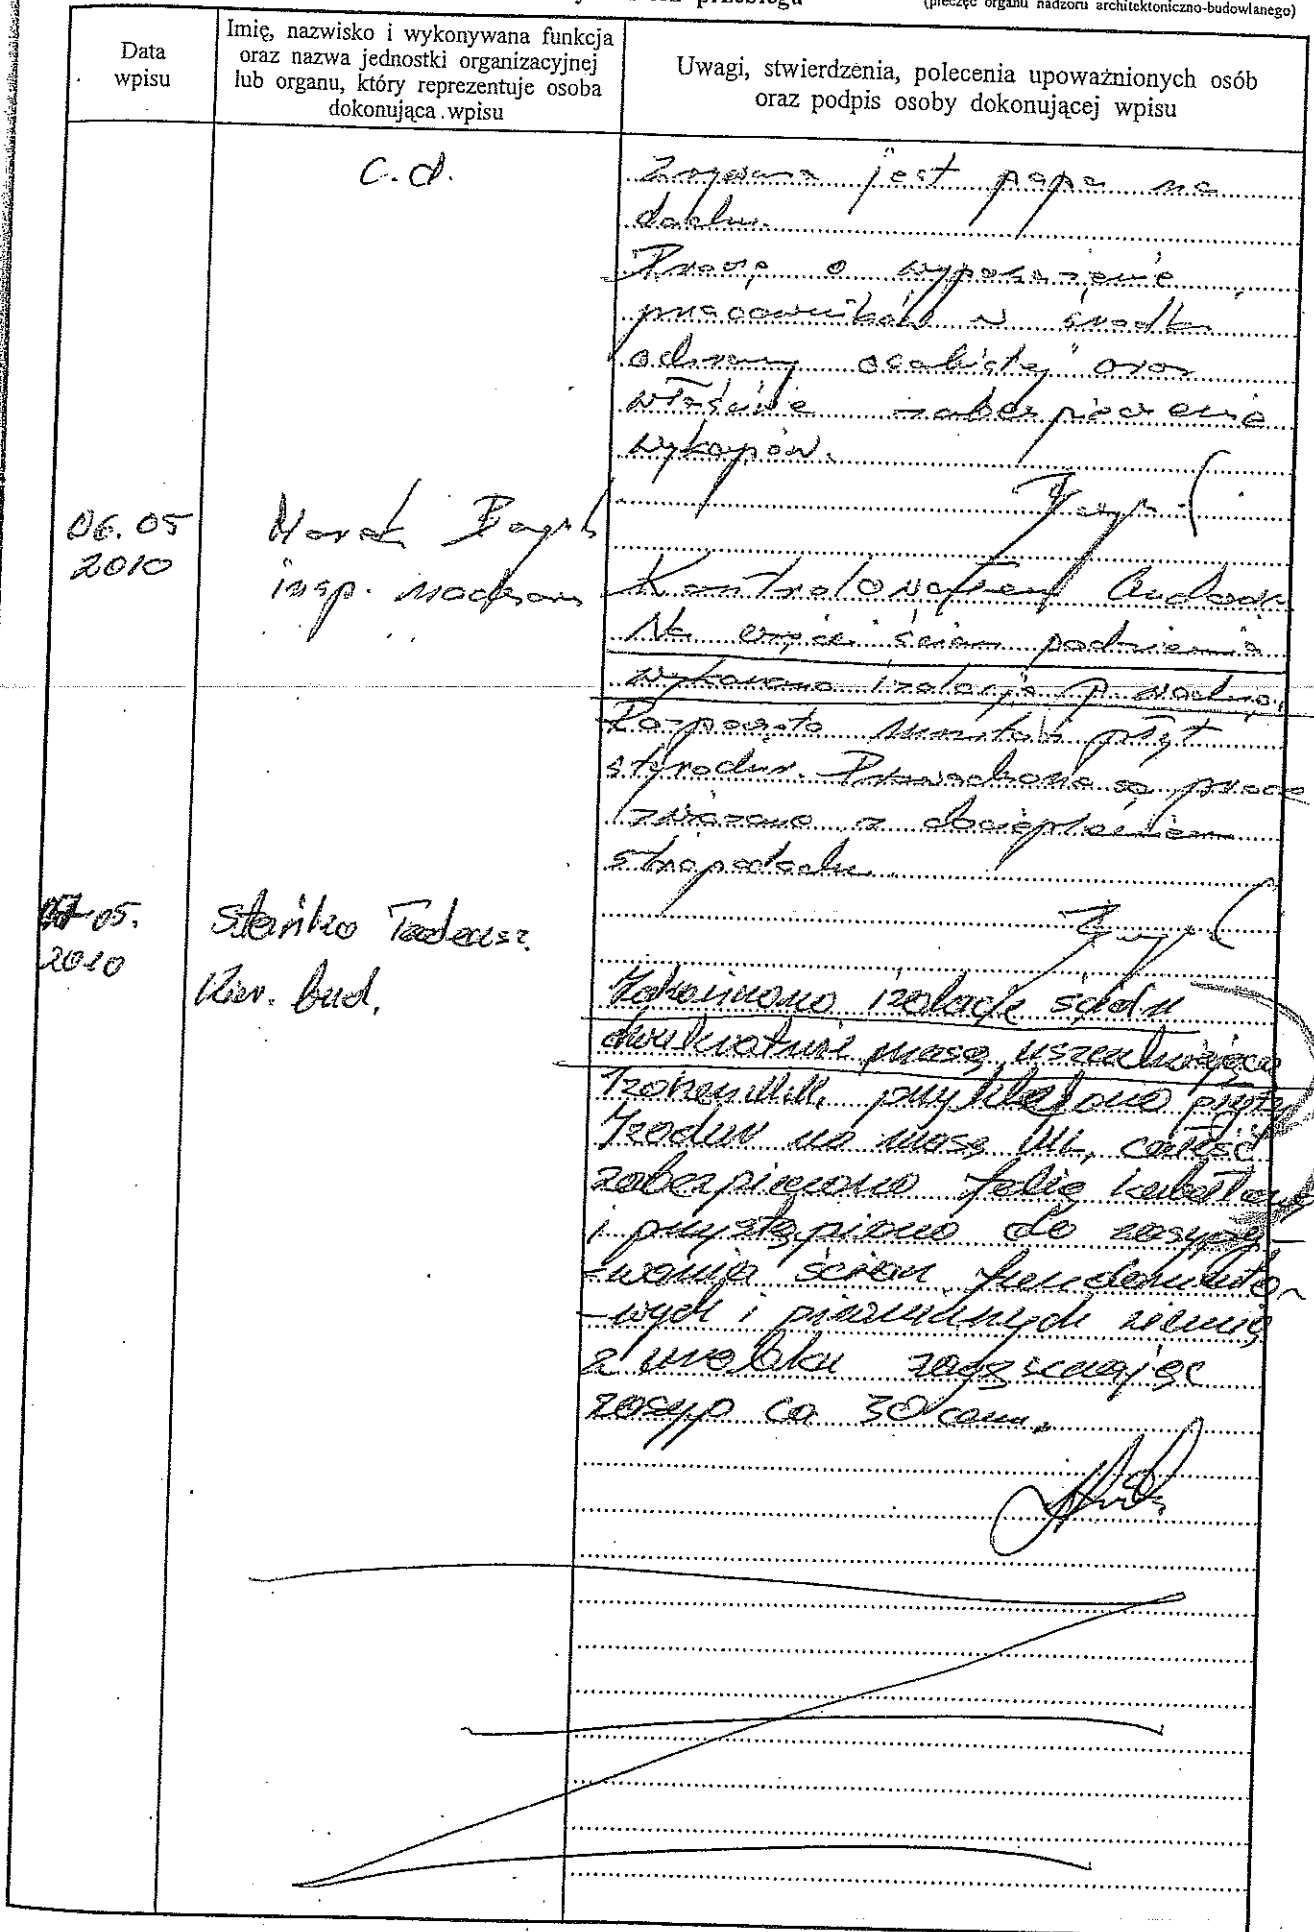 przebiegu
(pieczęć organu nadzoru architektoniczno-budowlanego)
Data
wpisu
Imię, nazwisko i wykonywana funkcja
oraz nazwa jednostki organizacyjnej
lub organu, który reprezentuje osoba
dokonująca wpisu
Uwagi, stwierdzenia, polecenia upoważnionych osób
oraz podpis osoby dokonującej wpisu
c.d.
Zrywana jest papa na
dachu.
Proszę o wyposażenie
pracowników w środki
ochrony osobistej oraz
właściwe zabezpieczenie
wykopów.
06.05
2010
Marek
insp. nadzoru
Kontrolowałem budowę
Na części ścian podziemia
wykonano izolację p. wodną.
Rozpoczęto montaż płyt
styrodur. Prowadzone są prace
związane z dociepleniem
stropodachu.
05.
2010
Stańko Tadeusz
Kier. bud.
Zakończono izolację
dwukrotnie masą uszczelniającą
przyklejono płyty
Izodur na masę całość
zabezpieczono folią kubełkową
i przystąpiono do zasypy-
-wania ścian fundamento-
-wych i piwnicznych ziemią
z urobku zagęszczając
zasyp co 30 cm.